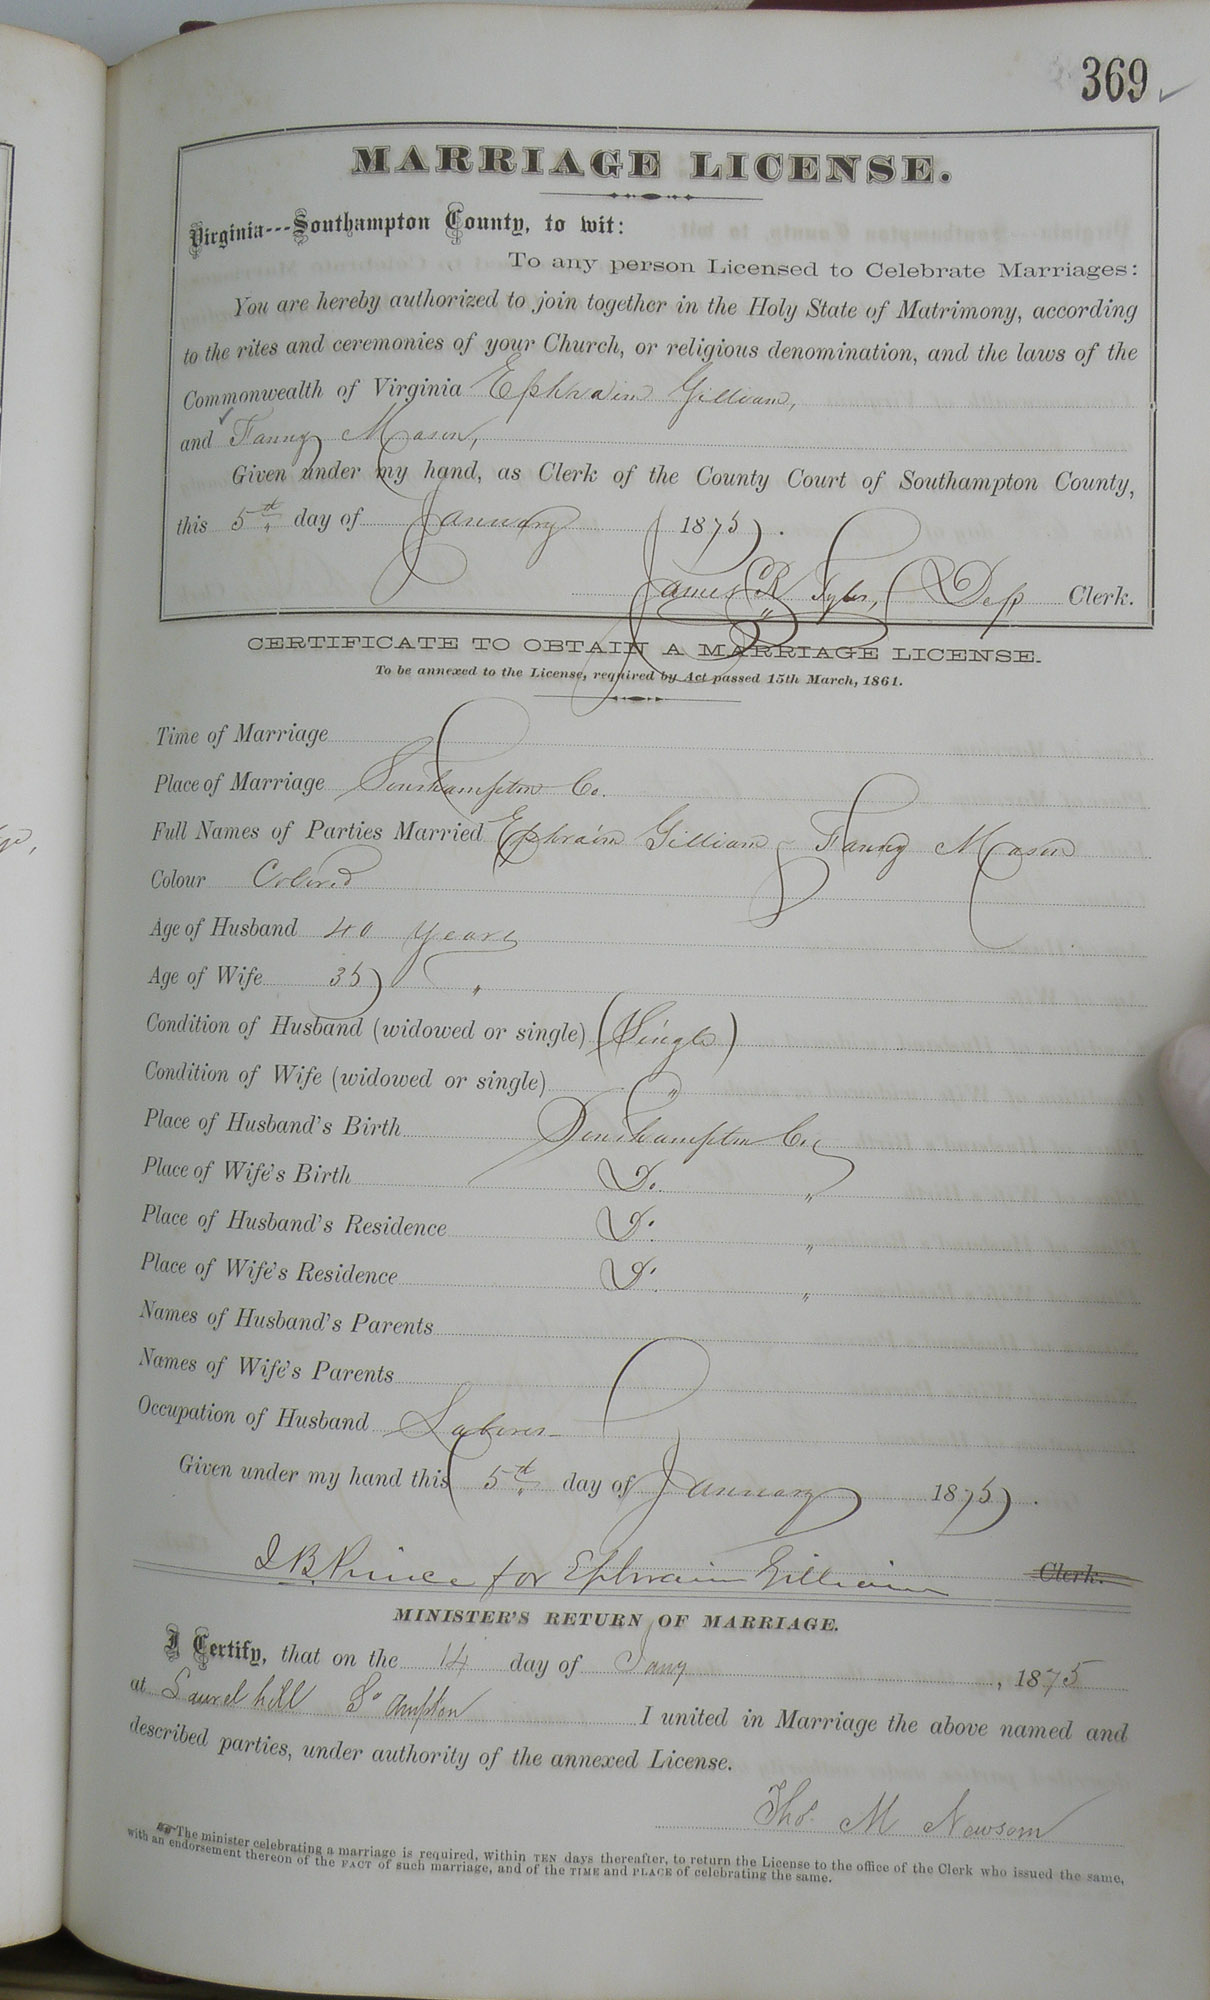 369
MARRIAGE LICENSE.
Virginia---Southampton County, to wit:
To any person Licensed to Celebrate Marriages:
You are hereby authorized to join together in the Holy State of Matrimony, according
to the rites and ceremonies of your Church, or religious denomination, and the laws of the
Commonwealth of Virginia Ephraim Gilliam,
and Fanny Mason,
Given under my hand, as Clerk of the County Court of Southampton County,
this 5th day of January 1875.
James R Tyler, Dep Clerk.
CERTIFICATE TO OBTAIN A MARRIAGE LICENSE.
To be annexed to the License, required by Act passed 15th March, 1861.
Time of Marriage
Place of Marriage Southampton Co.
Full Names of Parties Married Ephraim Gilliam & Fanny Mason
Colour Colored
Age of Husband 40 years
Age of Wife 35 "
Condition of Husband (widowed or single) (Single)
Condition of Wife (widowed or single) "
Place of Husband's Birth Southampton Co
Place of Wife's Birth Do. "
Place of Husband's Residence Do. "
Place of Wife's Residence Do. "
Names of Husband's Parents
Names of Wife's Parents
Occupation of Husband Laborer
Given under my hand this 5th day of January 1875.
J B. Prince for Ephraim Gilliam Clerk.
MINISTER'S RETURN OF MARRIAGE.
I Certify, that on the 14 day of Jany, 1875
at Laurel hill So ampton I united in Marriage the above named and
described parties, under authority of the annexed License.
Thos. M Newsom
The minister celebrating a marriage is required, within TEN days thereafter, to return the License to the office of the Clerk who issued the same,
with an endorsement thereon of the FACT of such marriage, and of the TIME and PLACE of celebrating the same.